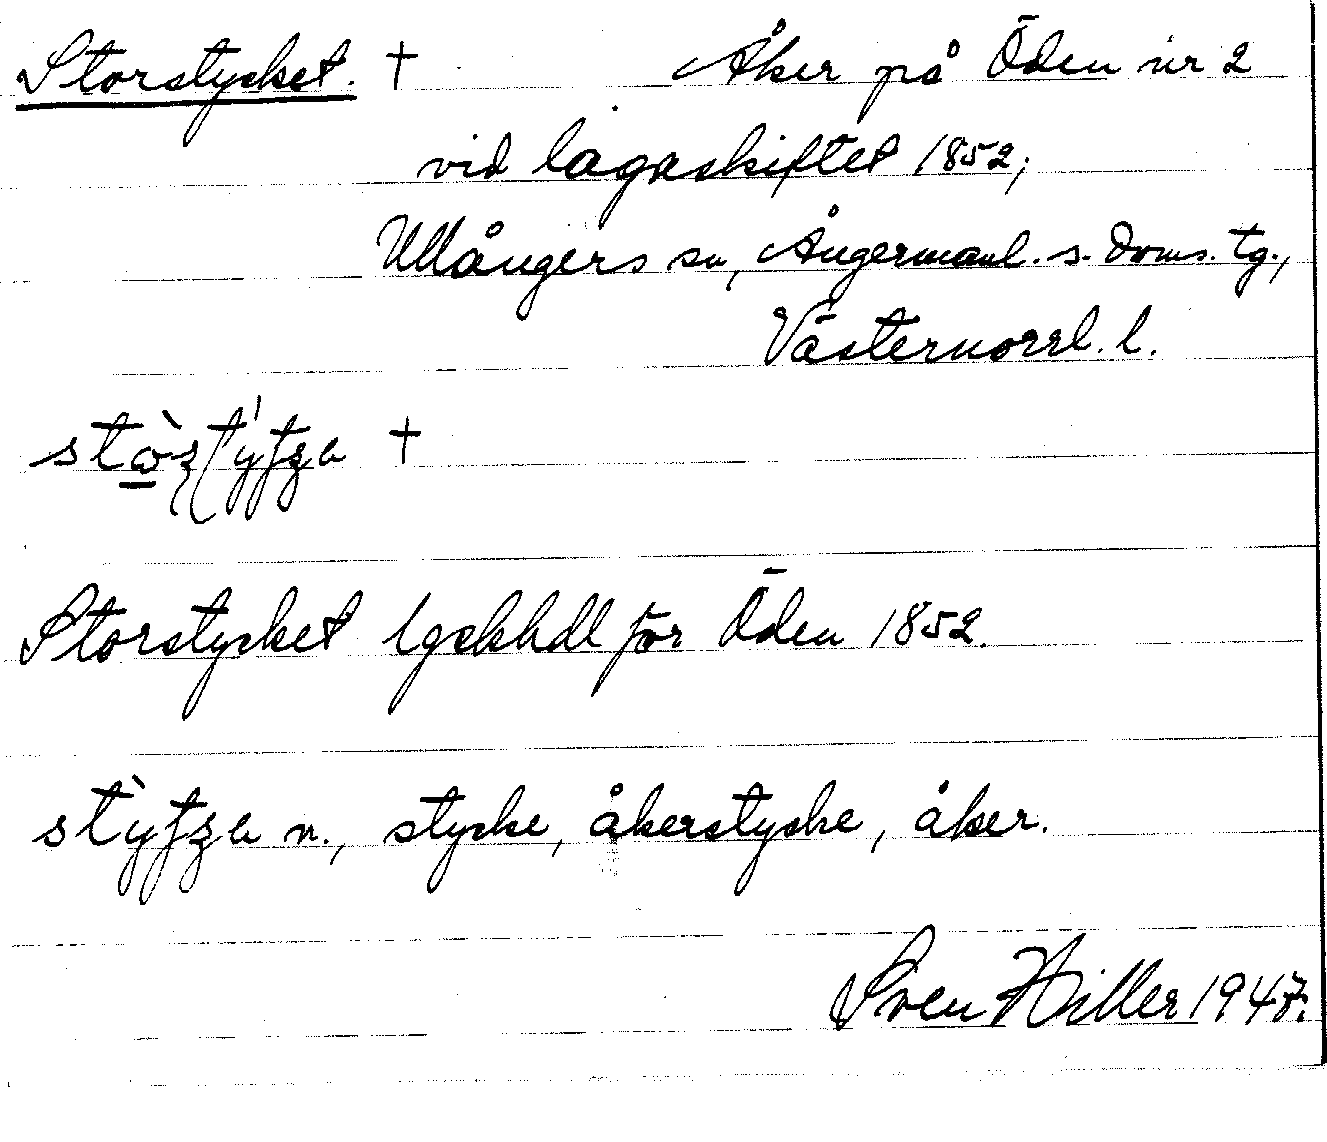 Storstycket. † Åker på Öden nr 2
vid lagaskiftet 1852;
Ullångers sn, Ångermanl. s. doms. tg.,
Västernorrl. l.
†
Storstycket lgskhdl för Öden 1852.
n., stycke, åkerstycke, åker.
Sven Hiller 1947.